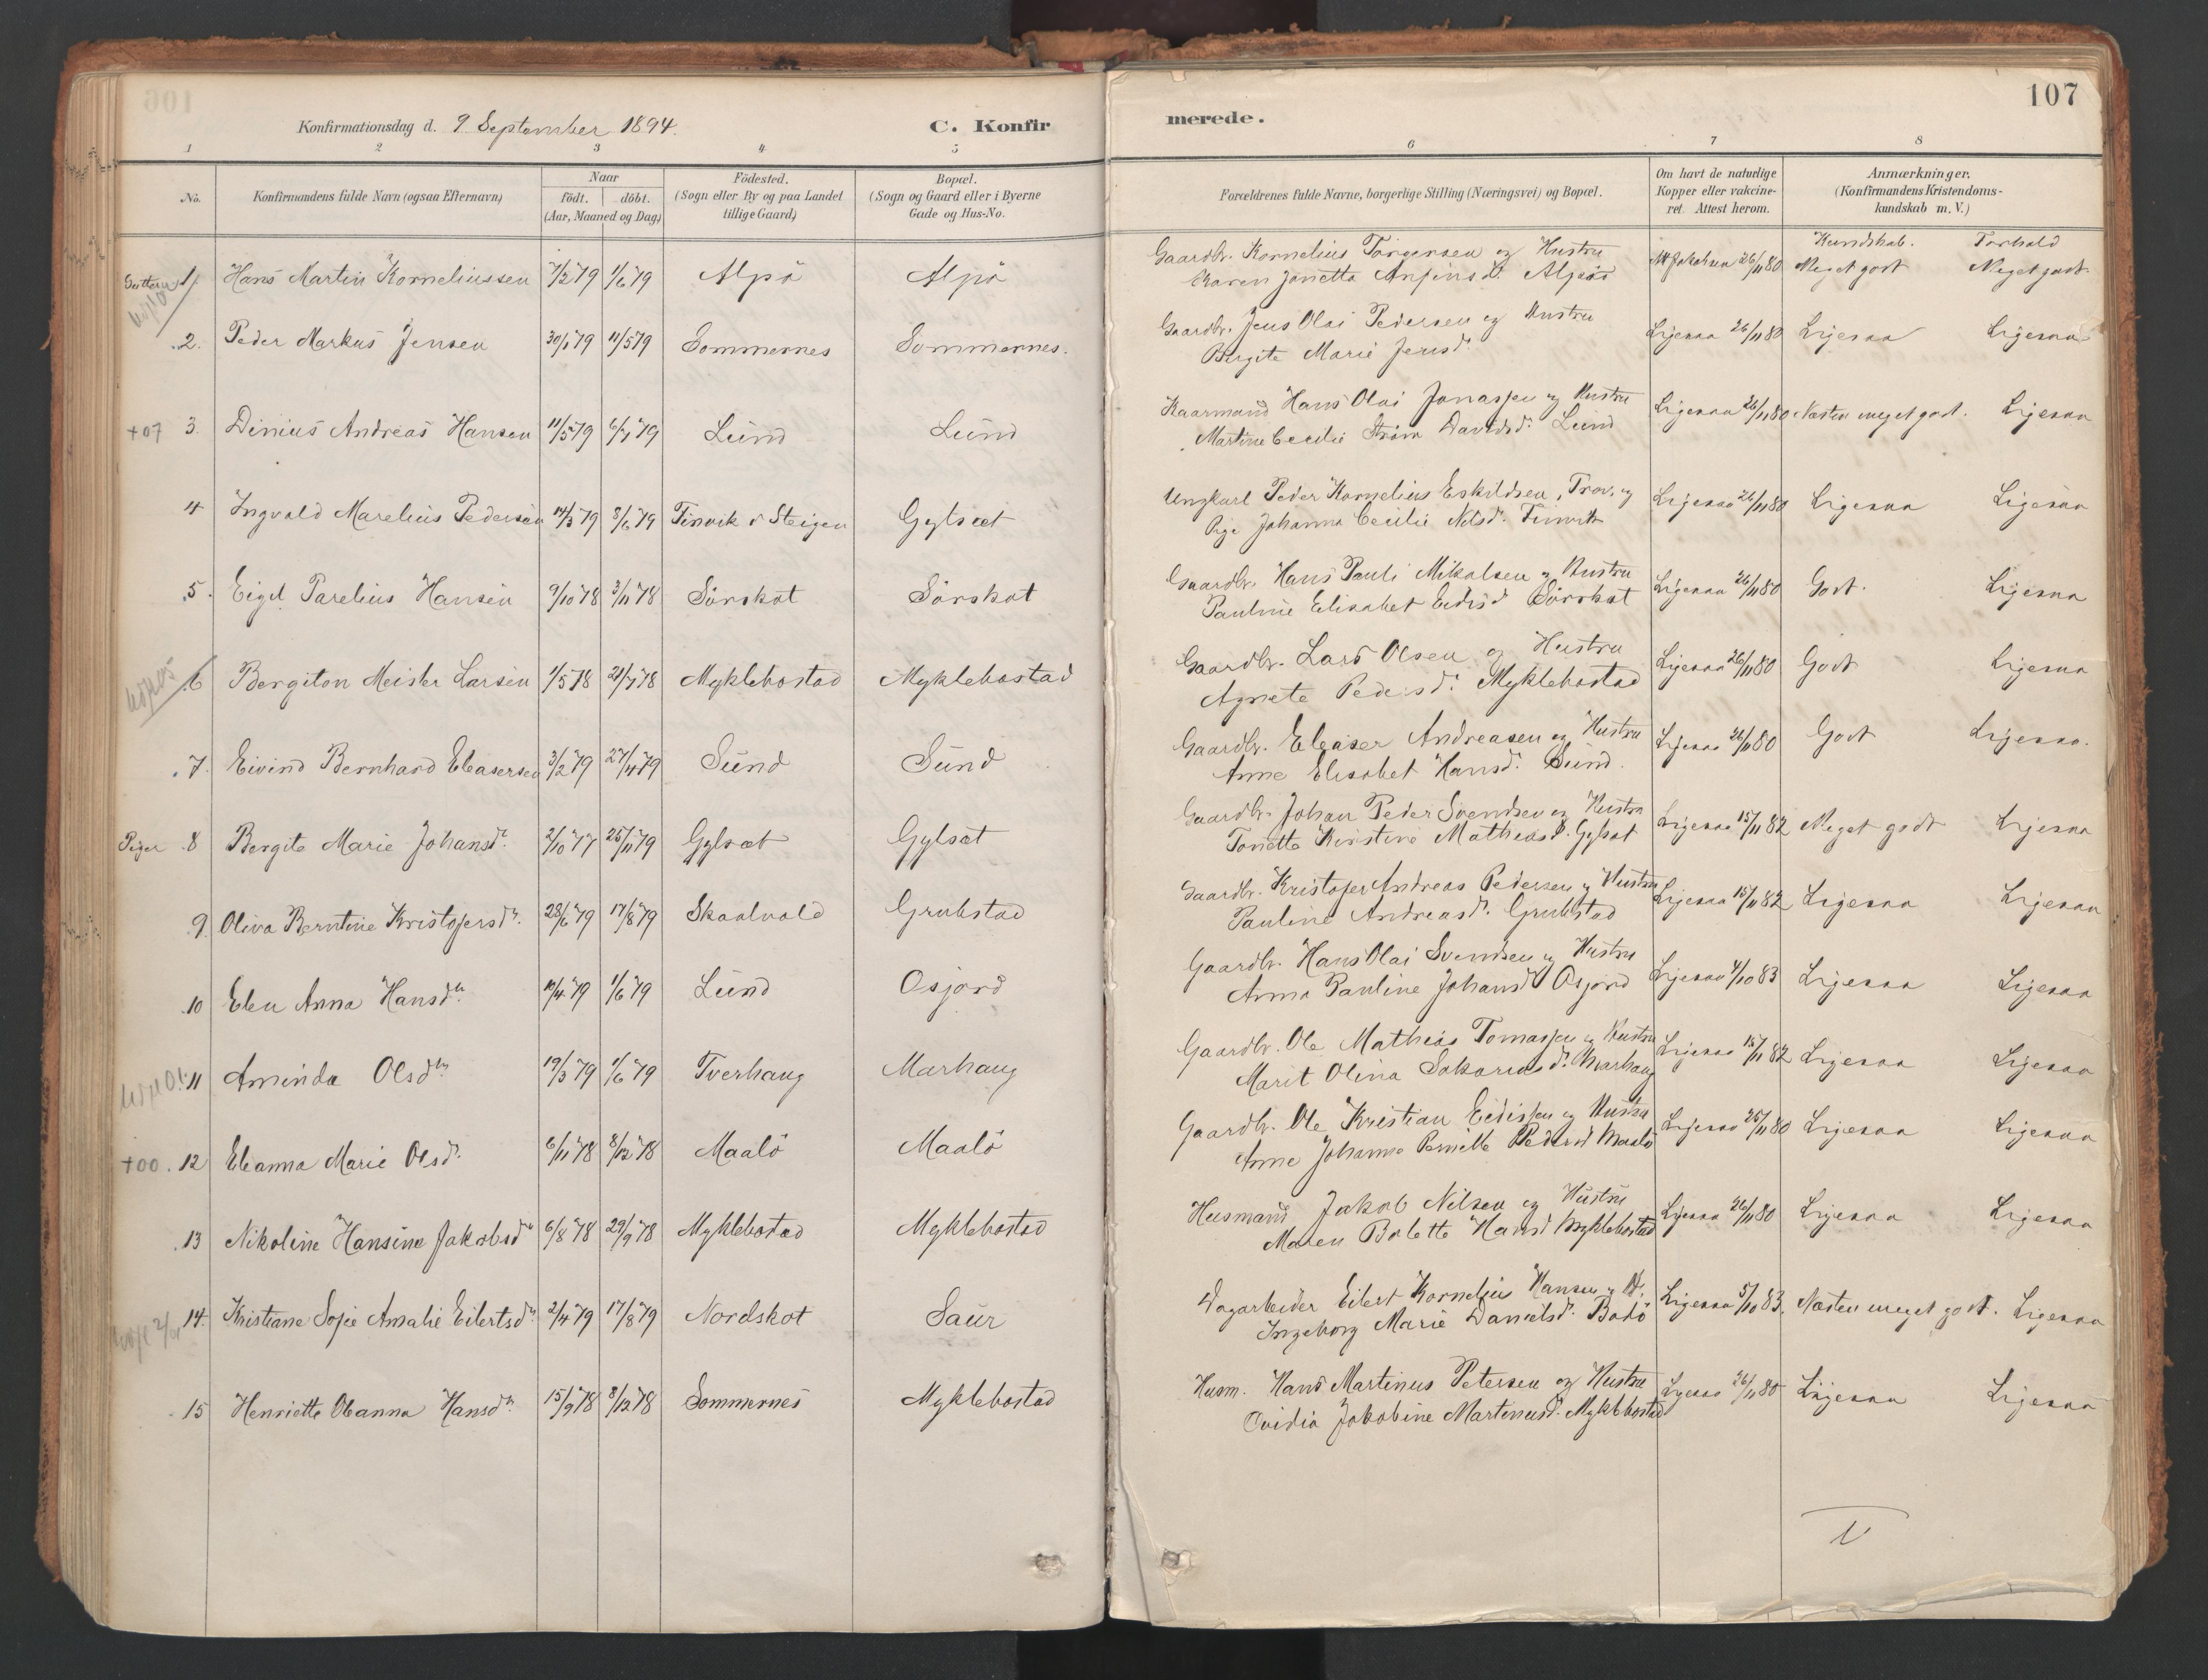 107
Konfirmationsdag d. 9 September 1894.
C. Konfirmerede.
1 2 3 4 5 6 7 8
No.
Konfirmandens fulde Navn (ogsaa Efternavn)
Naar
födt. döbt.
(Aar, Maaned og Dag)
Födested.
(Sogn eller By og paa Landet
tillige Gaard)
Bopæl.
(Sogn og Gaard eller i Byerne
Gade og Hus-No.
Forældrenes fulde Navne, borgerlige Stilling (Næringsvei) og Bopæl.
Om havt de naturlige
Kopper eller vakcine-
ret. Attest herom.
Anmærkninger.
(Konfirmandens Kristendoms-
kundskab m. V.)
Kundskab. Forhold
Gutter 1. Hans Martin Korneliussen 7/2 79 1/6 79 Alpö Alpö Gaardbr. Kornelius Torgersen og Hustru
Karen Janetta Anfinsd. Alpöö 26/11 80 Meget godt Meget godt.
2. Peder Markus Jensen 30/1 79 11/5 79 Sommernes Sommernes. Gaardbr. Jens Olai Pedersen og Hustru
Birgite Marie Jensd. Ligesaa 26/11 80 Ligesaa Ligesaa
+07 3. Dinius Andreas Hansen 11/5 79 6/7 79 Lund Lund Kaarmand Hans Olai Jonassen og Hustru
Martine Cecilie Strøm Davidsd. Lund Ligesaa 26/11 80 Næsten meget godt. Ligesaa
4 Ingvald Marelius Pedersen 14/3 79 8/6 79 Tinvik i Steigen Gylsæt Ungkarl Peder Kornelius Eskildsen, Trov. og
Pige Johanna Cecilie Nilsd. Tinvik Ligesaa 26/11 80 Ligesaa Ligesaa
5. Eigil Parelius Hansen 9/10 78 3/11 78 Sörskot Sörskot Gaardbr. Hans Pauli Mikalsen og Hustru
Pauline Elisabet Eidisd Sörskot Ligesaa 26/11 80 Godt. Ligesaa
6 Bergiton Meisler Larsen 1/5 78 21/7 78 Myklebostad Myklebostad Gaardbr. Lars Olsen og Hustru
Agnete Pedersd. Myklebostad Ligesaa 26/11 80 Godt Ligesaa
7. Eivind Bernhard Eleasersen 3/2 79 27/4 79 Sund Sund Gaardbr. Eleaser Andreasen og Hustru
Anne Elisabet Hansd. Sund. Ligesaa 26/11 80 Godt Ligesaa.
Piger 8 Bergite Marie Johansdr. 2/10 77 25/11 79 Gylsæt Gylsæt Gaardbr. Johan Peder Svendsen og Hustru
Tonette Kirstine Mathiasd. Gylsæt Ligesaa 15/11 82 Meget godt Ligesaa
9. Oliva Berntine Kristofersdr. 28/6 79 17/8 79 Skaalvold Grubstad Gaardbr. Kristofer Andreas Pedersen og Hustru
Pauline Andreasd. Grubstad Ligesaa 15/11 82 Ligesaa Ligesaa
10 Elen Anna Hansdr. 10/4 79 1/6 79 Lund Osjord Gaardbr. Hans Olai Svendsen og Hustru
Anna Pauline Johansd. Osjord Ligesaa 4/10 83 Ligesaa Ligesaa
11 Aminda Olsdr. 19/3 79 1/6 79 Tverhaug Marhaug Gaardbr. Ole Mathias Tomassen og Hustru
Marit Olina Sakariasd. Marhaug Ligesaa 15/11 82 Ligesaa Ligesaa
+00. 12 Eleanna Marie Olsd. 6/11 78 8/12 78 Maalö Maalö Gaardbr. Ole Kristian Eidissen og Hustru
Anne Johanna Pernille Pedersd Maalö Ligesaa 25/11 80 Ligesaa Ligesaa
13 Nikoline Hansine Jakobsdr 6/8 78 29/9 78 Myklebostad Myklebostad Husmand Jakob Nilsen og Hustru
Maren Bolette Hansd Myklebostad Ligesaa 26/11 80 Ligesaa Ligesaa
14. Kristiane Sofie Amalie Eilertsdr 2/4 79 17/8 79 Nordskot Saur Dagarbeider Eilert Kornelius Hansen og H.
Ingeborg Marie Danielsd. Bodö Ligesaa 5/10 83. Næsten meget godt. Ligesaa
15 Henriette Oleanna Hansdr. 15/9 78 8/12 78 Sommernes Myklebostad Husm. Hans Martinus Petersen og Hustru
Ovidia Jakobine Martinusd. Myklebostad Ligesaa 26/11 80 Ligesaa Ligesaa